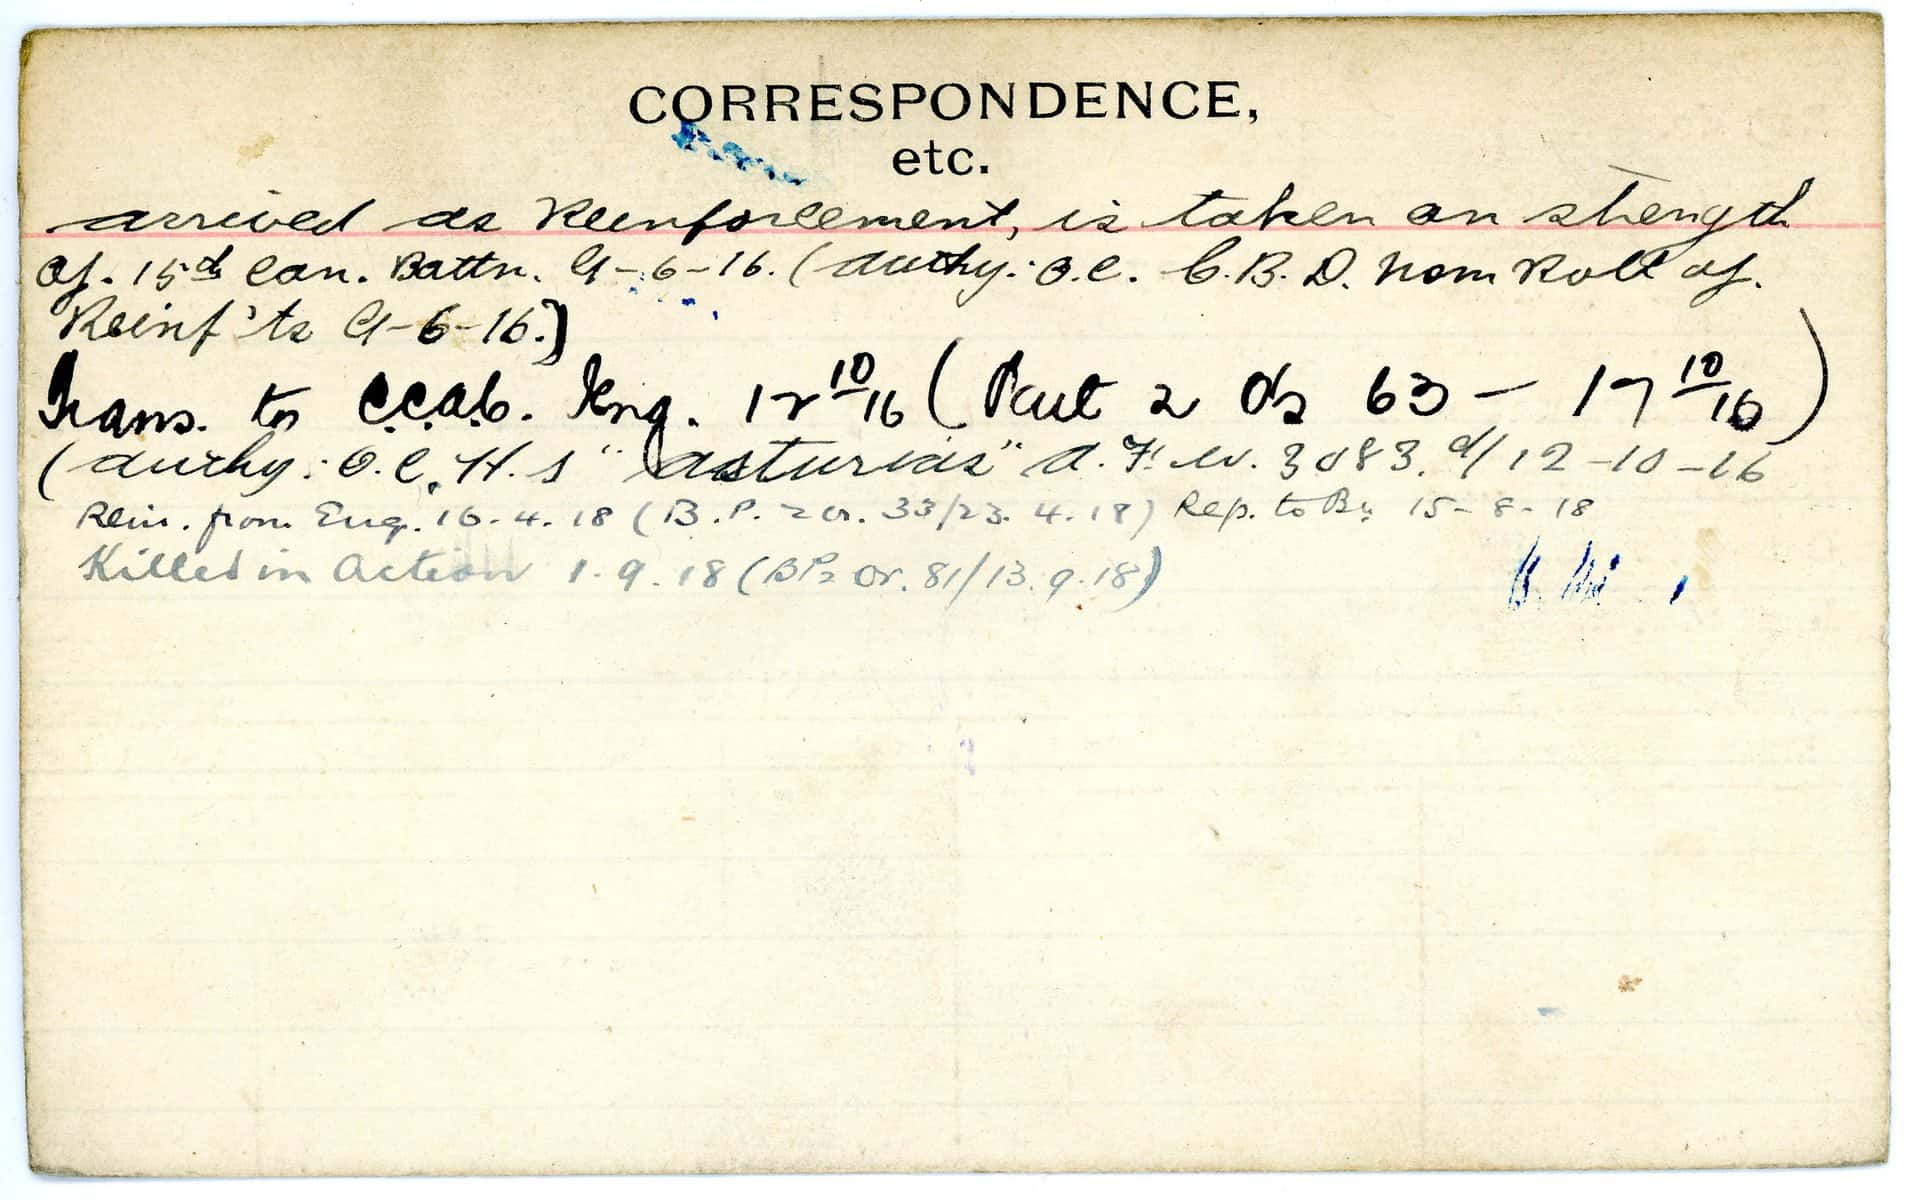 CORRESPONDENCE,
etc.
arrived as Reinforcement, is taken on strength
of. 15th Can. Battn. 9-6-16. (Authy: O.C. C.B.D. Nom Roll of.
Reinf'ts 9-6-16.)
Trans. to C.C.A.C. Eng. 12 10/16 (Part 2 Os 63 - 17 10/16)
(Authy: O.C. H.S "Asturias" A.F.W. 3083. d/12-10-16
Rein. from Eng. 16.4.18 (B.P. 2 or. 33/23.4.18) Rep. to Bn 15-8-18
Killed in Action 1.9.18 (BP2 Or. 81/13.9.18)